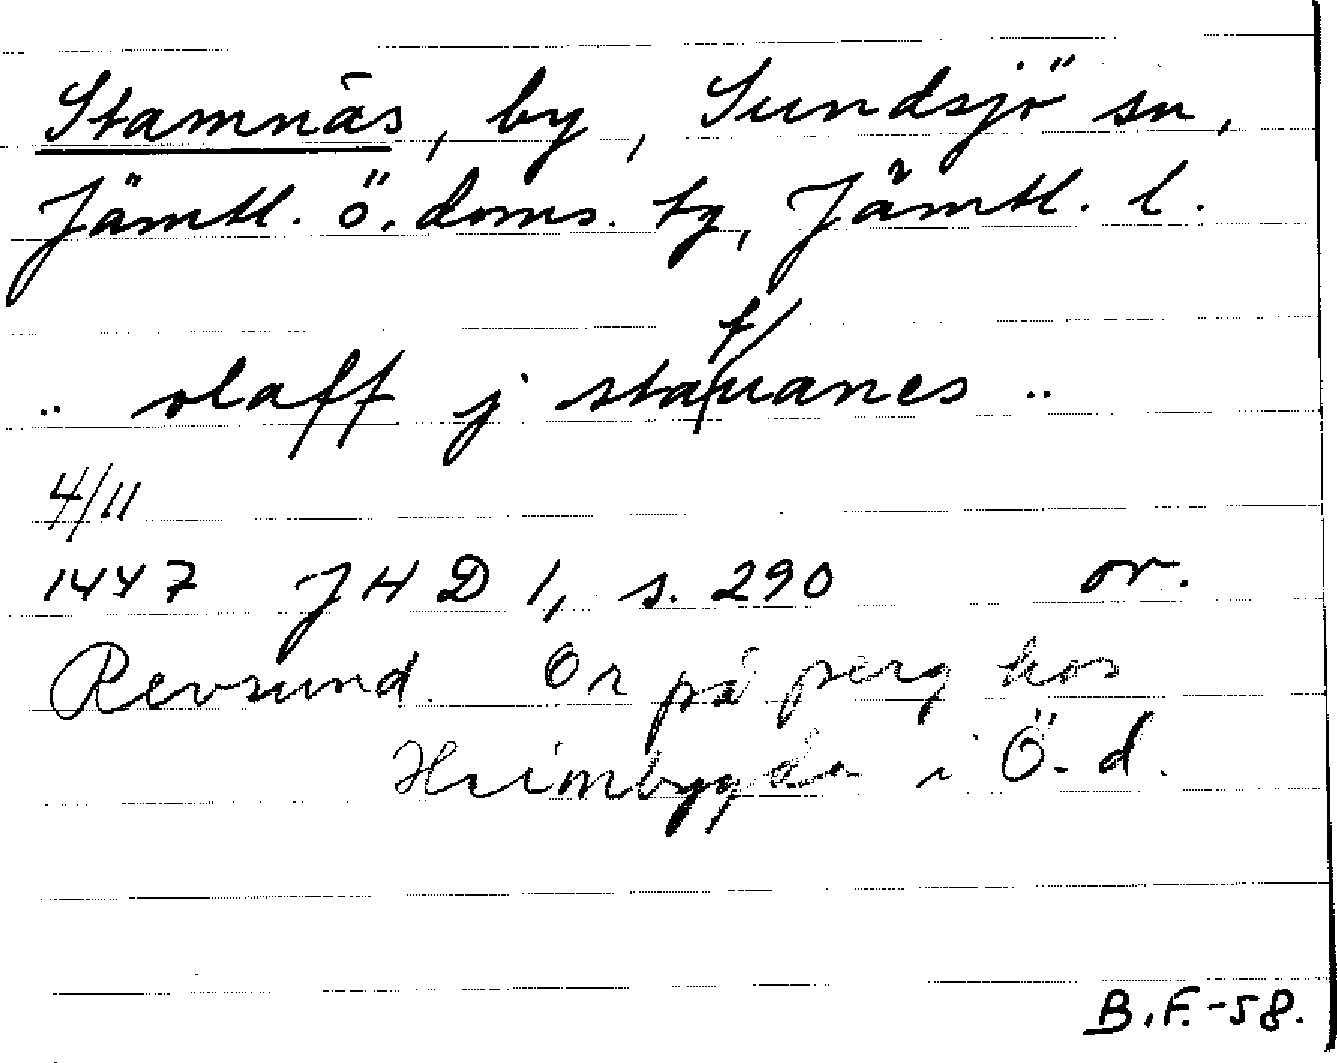 Stamnäs, by, Sundsjö sn,
Jämtl. ö. doms. tg, Jämtl. l.
.. olaff j stafuanes ..
4/11
1447 JHD 1, s. 290 or.
Revsund. Or på perg hos
Heimbygda i Ö-d.
B.F.-58.